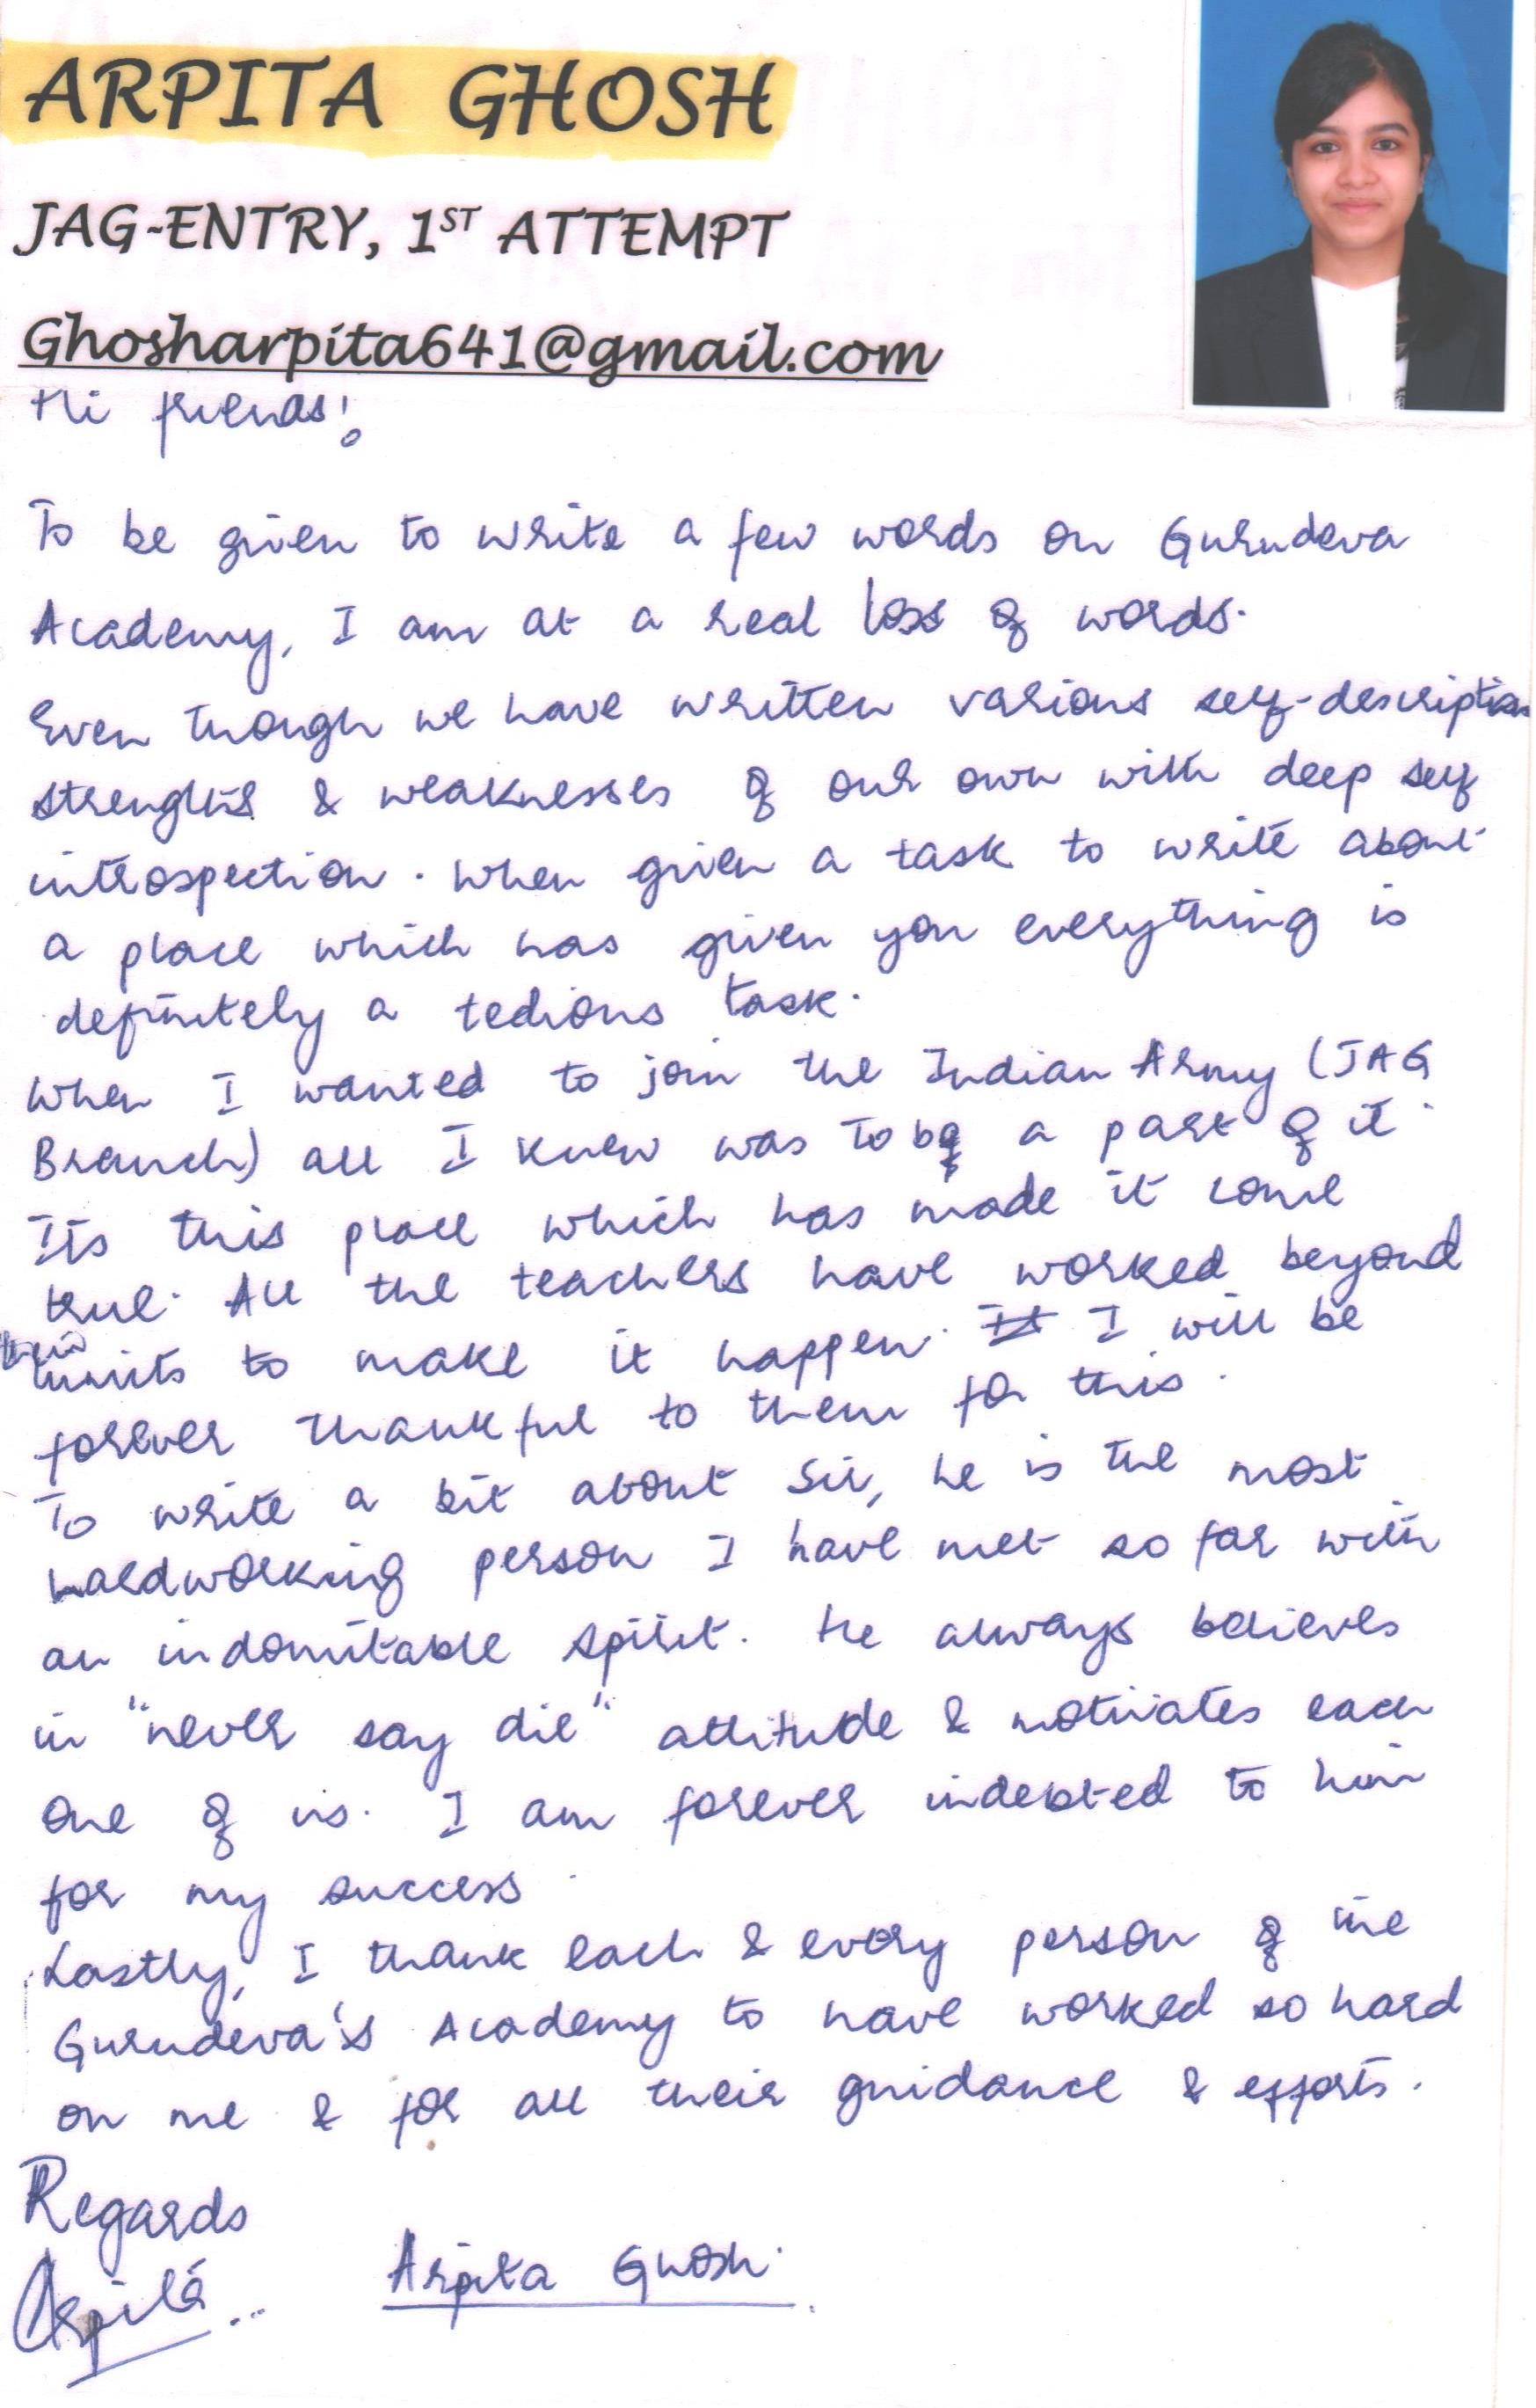 ARPITA GHOSH
JAG-ENTRY, 1ST ATTEMPT
Ghosharpita641@gmail.com
Hi friends!
To be given to write a few words on Gurudeva
Academy, I am at a real loss of words.
Even though we have written various self-description
strengths & weaknesses of our own with deep self
introspection. When given a task to write about
a place which has given you everything is
definitely a tedious task.
When I wanted to join the Indian Army (JAG
Branch) all I knew was to be a part of it.
Its this place which has made it come
true. All the teachers have worked beyond
their limits to make it happen. It I will be
forever thankful to them for this.
To write a bit about Sir, he is the most
hardworking person I have met so far with
an indomitable spirit. He always believes
in "never say die" attitude & motivates each
one of us. I am forever indebted to him
for my success.
Lastly, I thank each & every person of the
Gurudeva's Academy to have worked so hard
on me & for all their guidance & efforts.
Regards
Arpita
Arpita Ghosh.